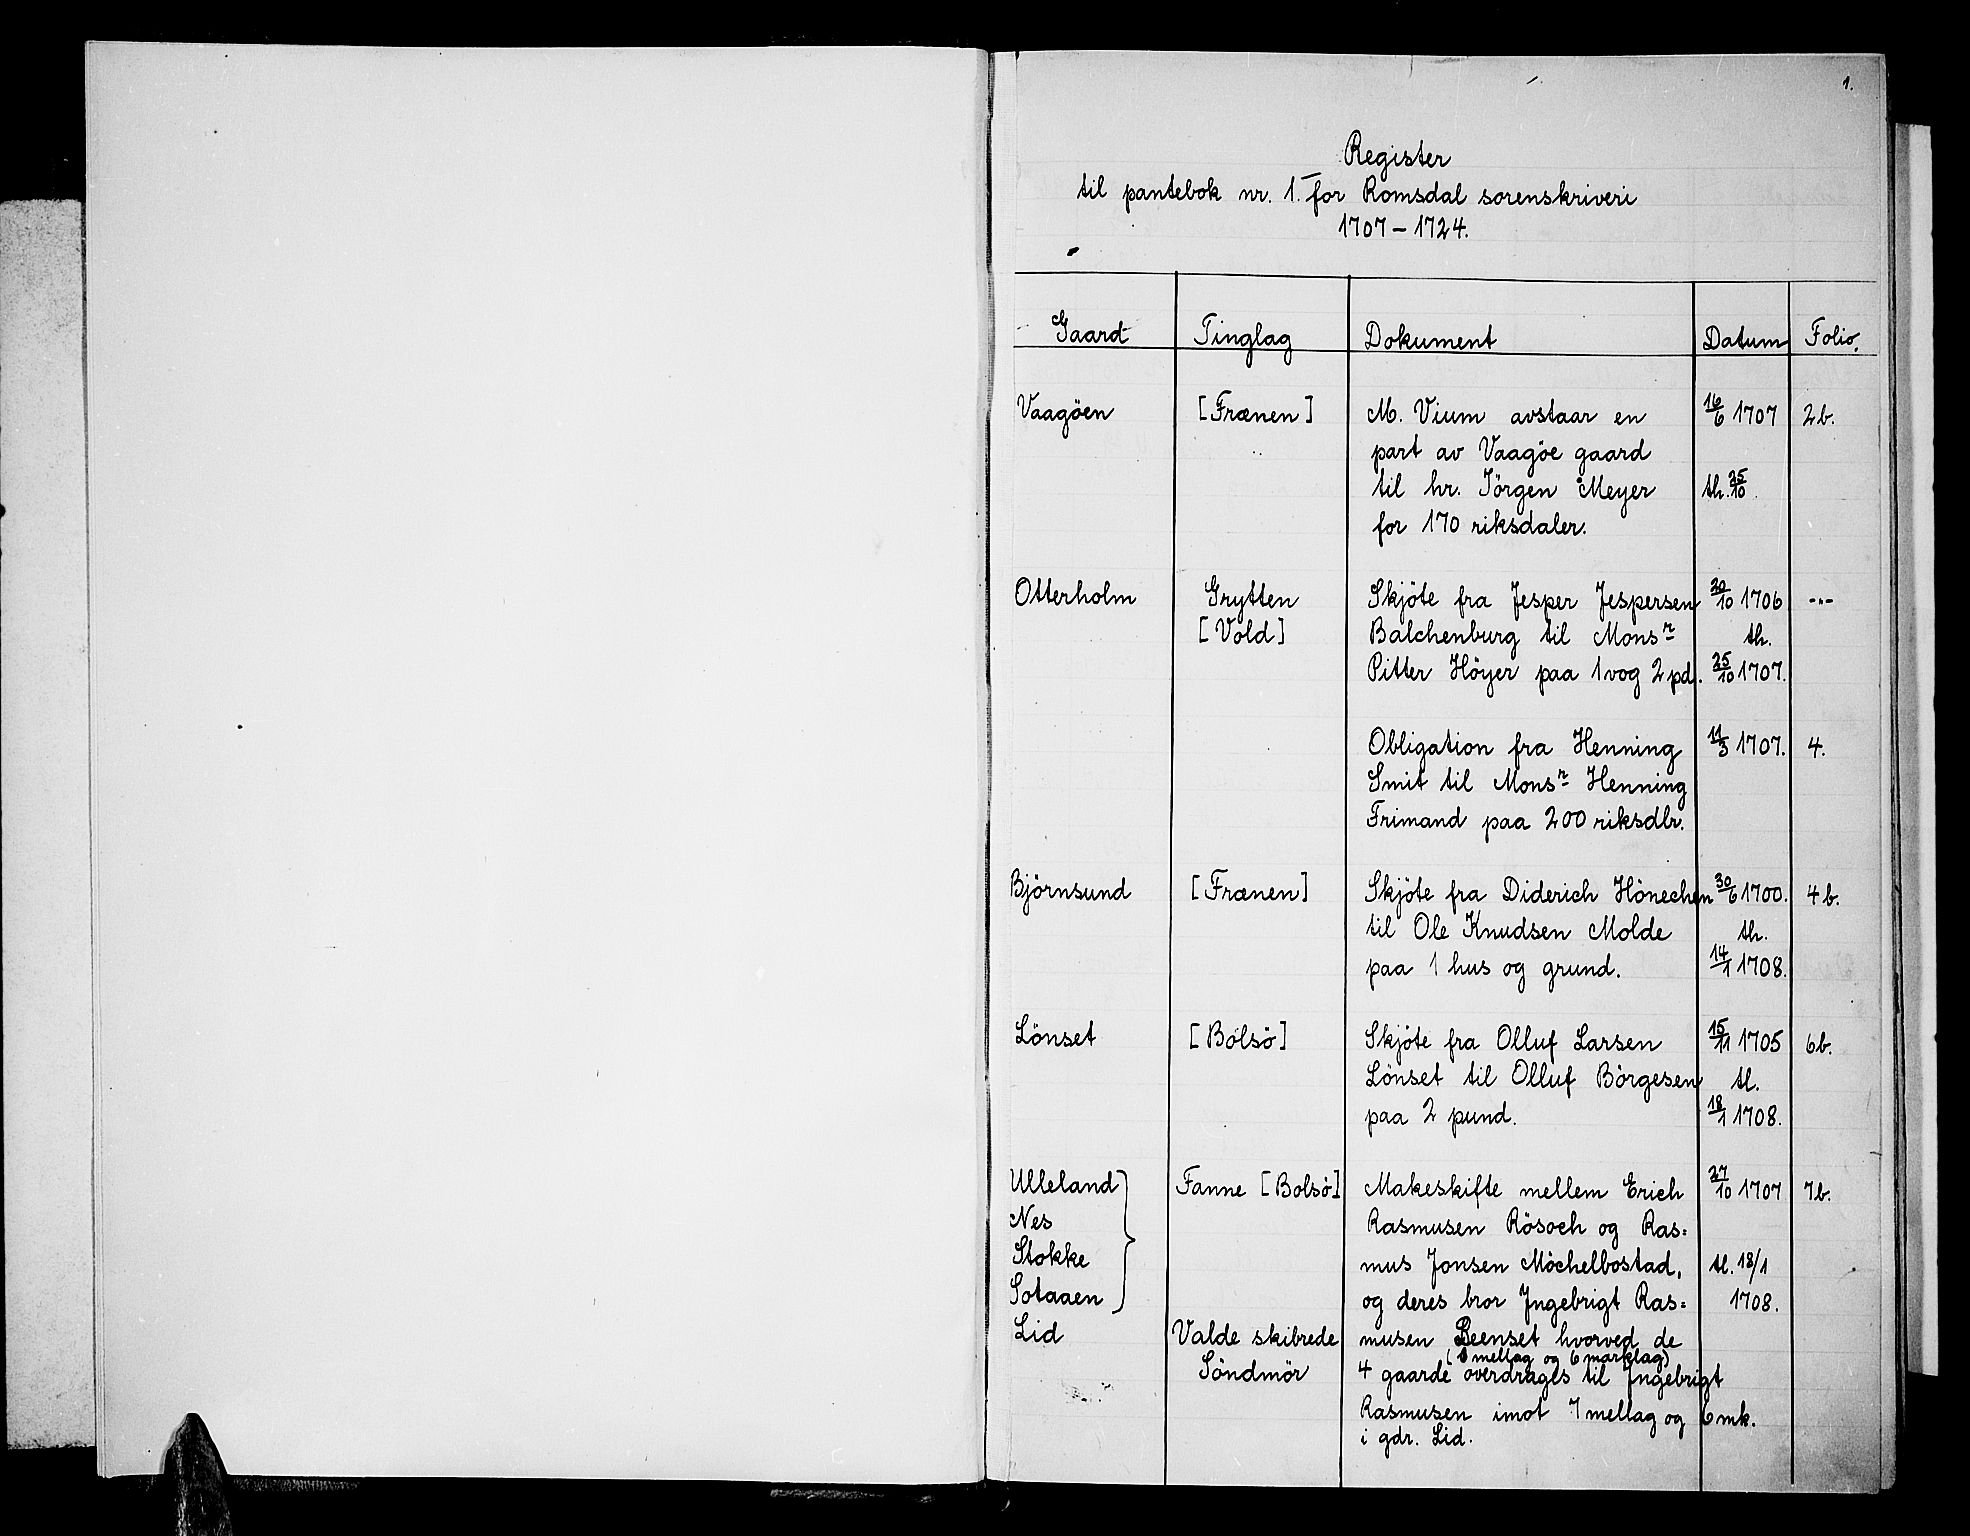 1.
Register
til pantebok nr. 1. for Romsdal sorenskriveri
1707 – 1724.
Gaard Tinglag Dokument Datum Folio.
Vaagöen [Frænen] M. Vium avstaar en 16/6 1707 2b.
part av Vaagöe gaard
til hr. Jörgen Meyer th. 25/10.
for 170 riksdaler.
Otterholm Grytten Skjöte fra Jesper Jespersen 30/10 1706 -"-
[Vold] Balchenburg til Monsr th.
Pitter Höyer paa 1 vog 2 pd. 25/10 1707.
Obligation fra Henning 11/3 1707. 4.
Smit til Monsr Henning
Frimand paa 200 riksdlr.
Björnsund [Frænen] Skjöte fra Diderich Hönechen 30/6 1700. 4b.
til Ole Knudsen Molde th.
paa 1 hus og grund. 14/1 1708.
Lönset [Bolsö] Skjöte fra Olluf Larsen 15/11 1705 6b.
Lönset til Olluf Börgesen tl.
paa 2 pund. 18/1 1708.
Ulleland Fanne [Bolsö] Makeskifte mellem Erich 27/10 1707 7b.
Nes Rasmusen Rösoch og Ras=
Stokke mus Jonsen Möchelbostad, tl. 18/1
Sotaaen og deres bror Jngebrigt Ras= 1708.
Lid Valde skibrede musen Leenset hvorved de
(1 mellag og 6 marklag)
Söndmör 4 gaarde overdrages til Jngebrigt
Rasmusen imot 7 mellag og 6 mk.
i gdr. Lid.